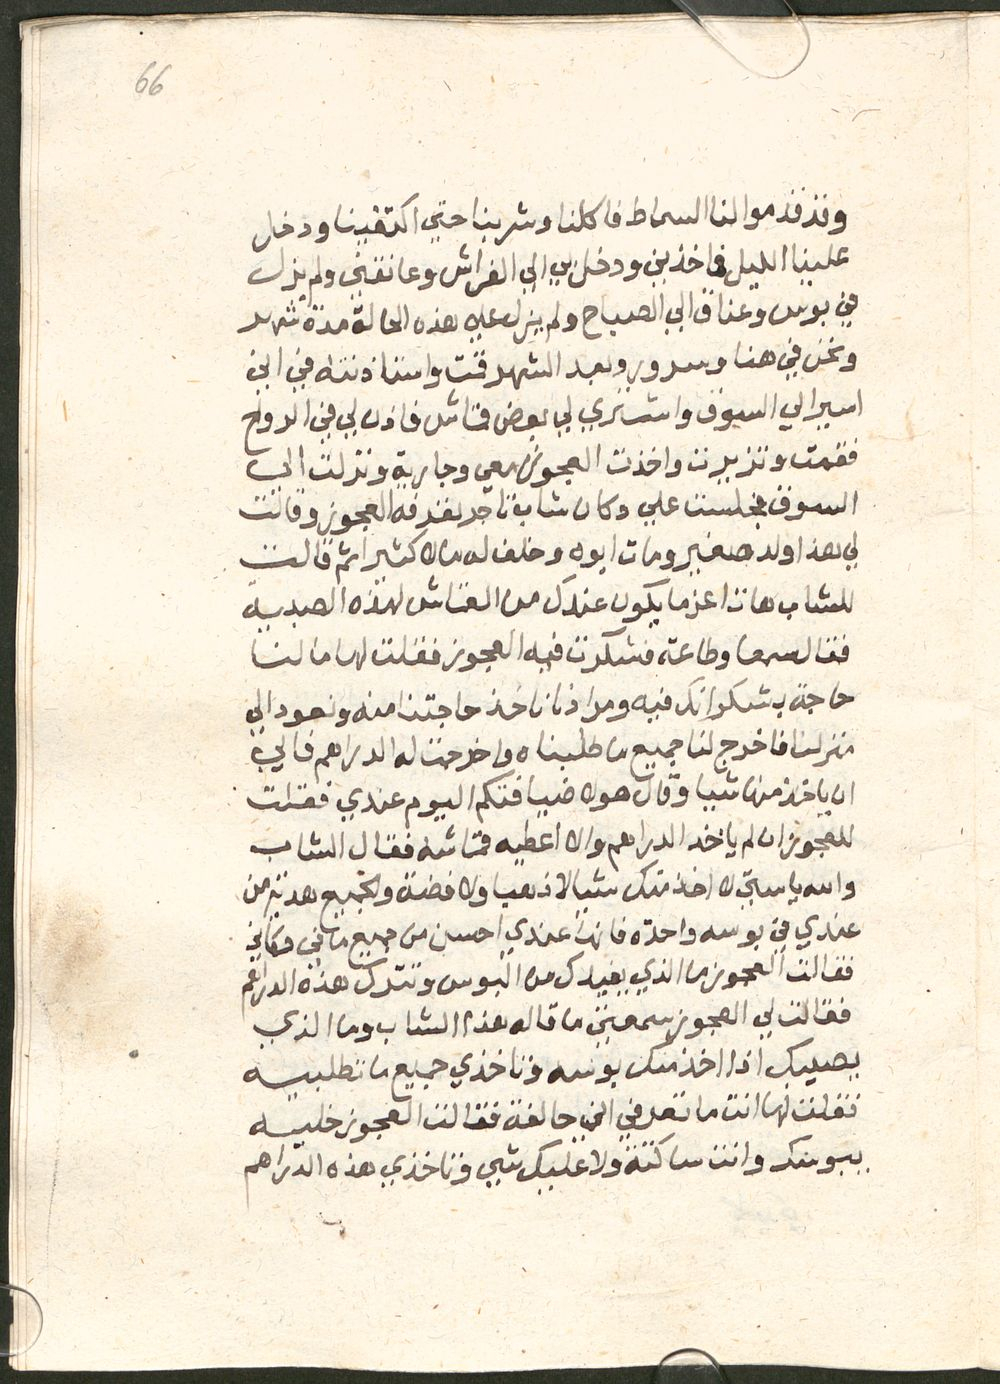 66
وقد قدموا لنا السماط فاكلنا وشربنا حتي اكتفينا ودخل
علينا الليل فاخذني ودخل بي الي الفراش وعانقني ولم يزل
في بوس وعناق الي الصباح ولم يزل علي هذه الحالة مدة شهر
ونحن في هنا وسرور وبعد الشهر قمت واستاذنته في اني
اسير الي السوق واشتري لي بعض قماش فاذن لي في الرواح
فقمت وتزيرت واخذت العجوز معي وجارية ونزلت الي
السوق فجلست علي دكان شاب تاجر تعرفه العجوز وقالت
لي هذا ولد صغير ومات ابوه وخلف له مالا كثيرا ثم قالت
للشاب هات اعز ما يكون عندك من القماش لهذه الصبية
فقال سمعا وطاعة فشكرت فيه العجوز فقلت لها ما لنا
حاجة بشكرانك فيه ومرادنا ناخذ حاجتنا منه ونعود الي
منزلنا فاخرج لنا جميع ما طلبناه واخرجت له الدراهم فابي
ان ياخذ منها شيا وقال هولا ضيافتكم اليوم عندي فقلت
للعجوز ان لم ياخد الدراهم والا اعطيه قماشه فقال الشاب
والله ياستي لا اخذ منك شيا لا ذهبا ولا فضة والجميع هدية من
عندي في بوسه واحده فانها عندي احسن من جميع ما في دكاني
فقالت العجوز ما الذي يفيدك من البوس وتترك هذه الدراهم
فقالت لي العجوز سمعتي ما قاله هذا الشاب وما الذي
يصيبك اذا اخذ منك بوسه وتاخذي جميع ما تطلبيه
فقلت لها انت ما تعرفي اني حالفة فقالت العجوز خليه
يبوسك وانت ساكتة ولا عليك شي وتاخذي هذه الدراهم